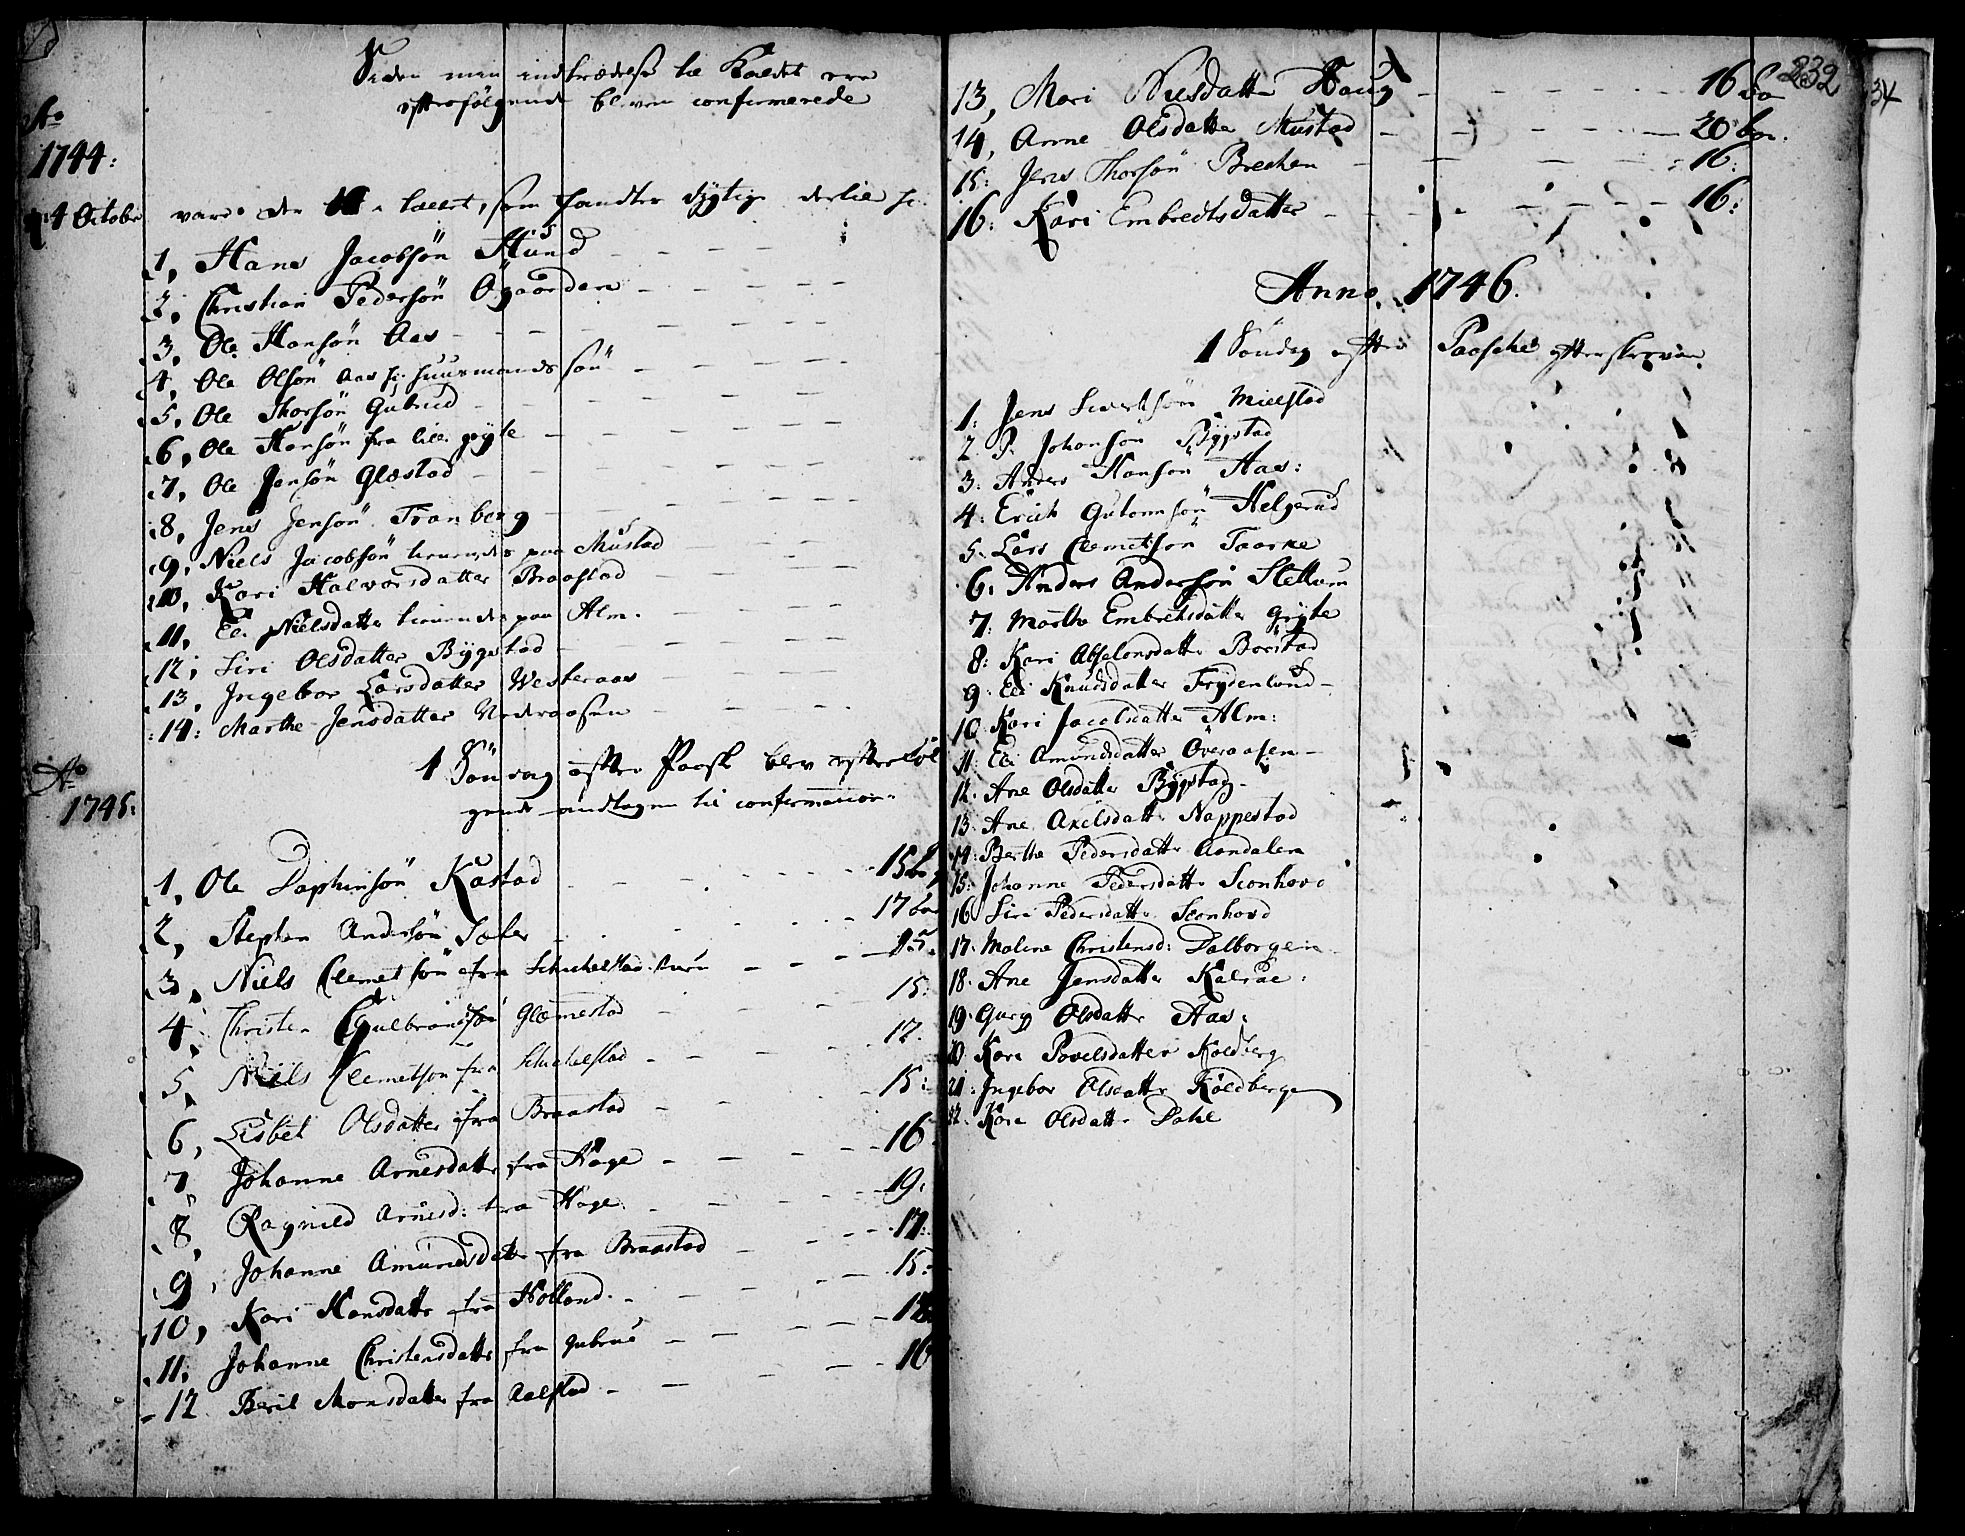 Siden min indtrædelse til Kaldet ere
efterfølgende blevne confirmerede
Ao
1744:
4 Octobr vare de tallet, som fandtes dygtige dertil
1, Hans Jacobsön Stund
2, Christian Pedersön Ögaarden
3, Ole Hansön Aas
4, Ole Olsön Aas huusmands sön
5, Ole Thorsön Gubrud
6, Ole Hansön fra lille gryte
7, Ole Jensön Glæstad
8, Jens Jensön Tranberg
9, Niels Jacobsön tienende paa Mustad
10, Kari Halvorsdatter Braastad
11, Eli Nielsdatter tienende paa Alm.
12, Siri Olsdatter Bÿgstad
13, Ingebor Larsdatter Westeraas
14: Marthe Jensdatter
Ao
1745:
1 Söndag efter Paaske blev efterföl
gende andtagen til confirmation.
1, Ole Daphinsön Kastad 15
2, Stephen Andersön 17
3, Niels Clemetsön fra 15
4, Christen Gulbransön Glæmestad 15
5, Niels Clemetson fra Schichelstad 12.
6, Lisbet Olsdatter fra Braastad 15:
7 Johanne Arnesdatter fra Hage 16
8, Ragnild Arnesd: fra Hage 19.
9, Johanne Amundsdatter fra Braastad 17:
10, Kari Hansdatter fra Holland. 15:
11, Johanne Christensdatter fra Gubrud 18
12 Berit Monsdatter fra Aalstad 16
232
13, Mari Nilsdatter Haug 16
14, Anne Olsdatter Mustad 20
15: Jens Thorsön Brechen 16:
16: Kari Embretsdatter 16:
Anno. 1746.
1 Söndag efter Paaske efterskrevne
1: Jens Sivertsön Mielstad
2. P. Johansön Bÿgstad
3: Anders Hansön Aas:
4: Erich Gutormsön Helgerud
5: Lars Clemetsön
6: Anders Andersön Stettum
7: Marthe Embretsdatter gryte
8: Kari Absalonsdatter
9: Eli Knudsdatter Frydenlund
10 Kari Jacobsdatter Alm:
11: Eli Amundsdatter Överaasen
12. Ane Olsdatter Bÿgstad
13. Ane Axelsdatter Nappestad
14: Berthe Pedersdatter
15: Johanne Pedersdatter Sconhovd
16 Siri Pedersdatter Sconhovd
17: Malene Christensd: Dalborgen
18. Ane Jensdatter
19. Guri Olsdatter Aas:
20 Kari Povelsdatter Koldberg
21: Ingebor Olsdatter Koldbergen
22. Kari Olsdatter Dahl